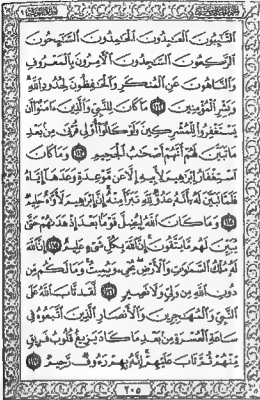 التَّٰٓئِبُونَ الْعَٰبِدُونَ الْحَٰمِدُونَ السَّٰٓئِحُونَ
الرَّٰكِعُونَ السَّٰجِدُونَ الْءَامِرُونَ بِالْمَعْرُوفِ
وَالنَّاهُونَ عَنِ الْمُنكَرِ وَالْحَٰفِظُونَ لِحُدُودِ اللَّهِ
وَبَشِّرِ الْمُؤْمِنِينَ ١١٢ مَا كَانَ لِلنَّبِيِّ وَالَّذِينَ ءَامَنُوٓا أَن
يَسْتَغْفِرُوا لِلْمُشْرِكِينَ وَلَوْ كَانُوٓا أُولِي قُرْبَىٰ مِنۢ بَعْدِ
مَا تَبَيَّنَ لَهُمْ أَنَّهُمْ أَصْحَٰبُ الْجَحِيمِ ١١٣ وَمَا كَانَ
اسْتِغْفَارُ إِبْرَٰهِيمَ لِأَبِيهِ إِلَّا عَن مَّوْعِدَةٍ وَعَدَهَآ إِيَّاهُ
فَلَمَّا تَبَيَّنَ لَهُۥٓ أَنَّهُۥ عَدُوٌّ لِّلَّهِ تَبَرَّأَ مِنْهُ إِنَّ إِبْرَٰهِيمَ لَأَوَّٰهٌ حَلِيمٌ
١١٤ وَمَا كَانَ اللَّهُ لِيُضِلَّ قَوْمًۢا بَعْدَ إِذْ هَدَىٰهُمْ حَتَّىٰ
يُبَيِّنَ لَهُم مَّا يَتَّقُونَ إِنَّ اللَّهَ بِكُلِّ شَيْءٍ عَلِيمٌ ١١٥ إِنَّ اللَّهَ
لَهُۥ مُلْكُ السَّمَٰوَٰتِ وَالْأَرْضِ يُحْيِۦ وَيُمِيتُ وَمَا لَكُم مِّن
دُونِ اللَّهِ مِن وَلِيٍّ وَلَا نَصِيرٍ ١١٦ لَّقَد تَّابَ اللَّهُ عَلَى
النَّبِيِّ وَالْمُهَٰجِرِينَ وَالْأَنصَارِ الَّذِينَ اتَّبَعُوهُ فِي
سَاعَةِ الْعُسْرَةِ مِنۢ بَعْدِ مَا كَادَ يَزِيغُ قُلُوبُ فَرِيقٍ
مِّنْهُمْ ثُمَّ تَابَ عَلَيْهِمْ إِنَّهُۥ بِهِمْ رَءُوفٌ رَّحِيمٌ ١١٧
٢٠٥